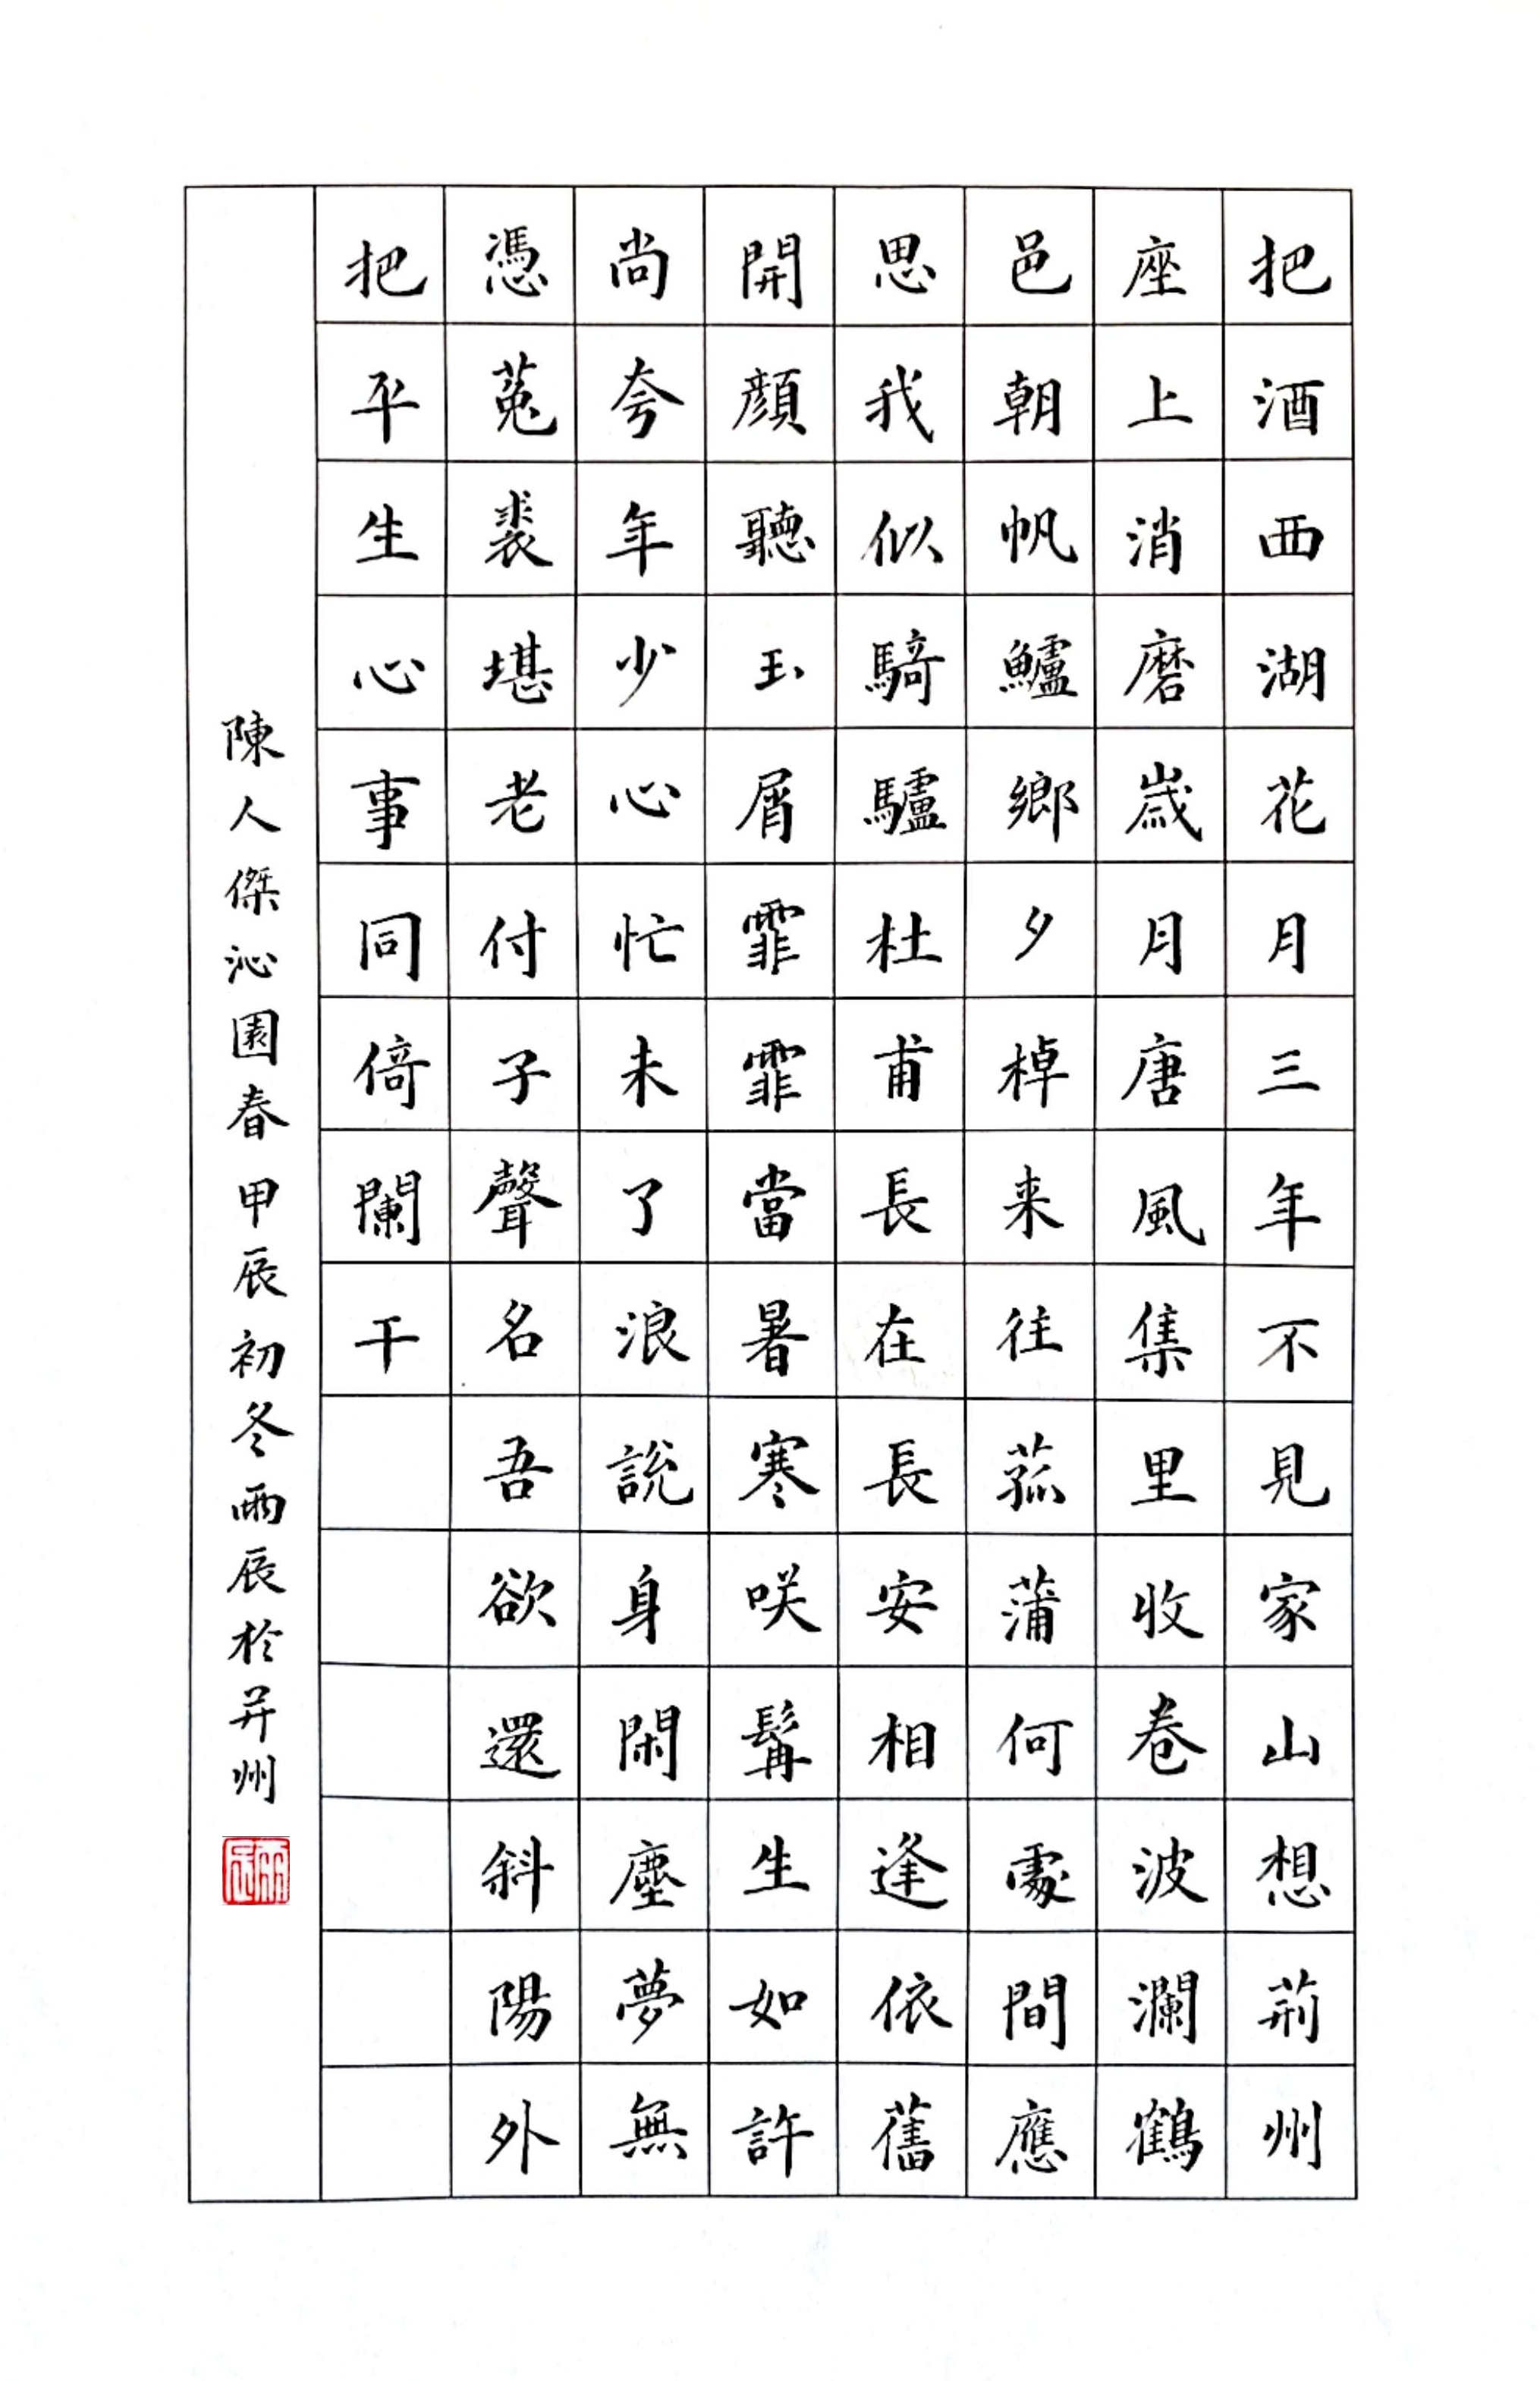 把酒西湖花月三年不見家山想荊州
座上消磨歲月唐風集里收卷波瀾鶴
邑朝帆鱸鄉夕棹来往菰蒲何處間應
思我似騎驢杜甫長在長安相逢依舊
開顏聽玉屑霏霏當暑寒咲髯生如許
尚夸年少心忙未了浪說身閑塵夢無
憑菟裘堪老付子聲名吾欲還斜陽外
把平生心事同倚闌干
陳人傑沁園春甲辰初冬雨辰於并州
雨辰